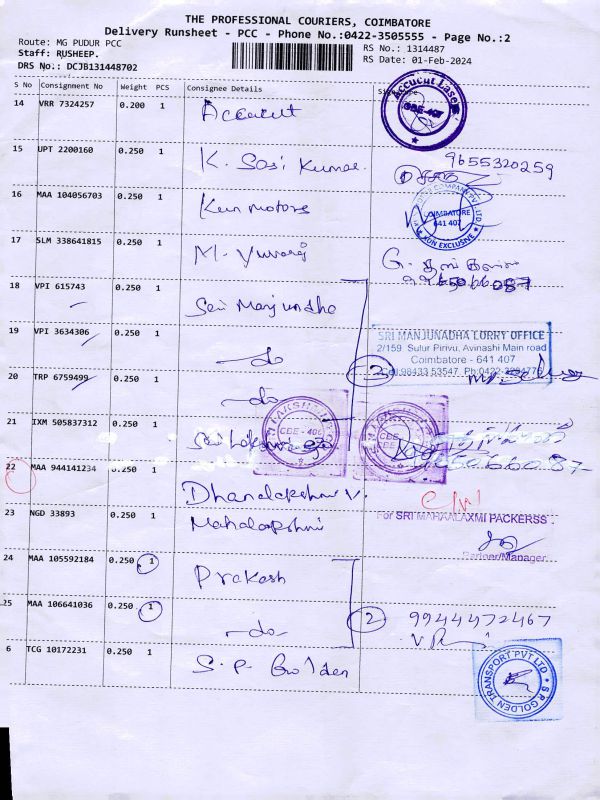 THE PROFESSIONAL COURIERS, COIMBATORE
Delivery Runsheet - PCC - Phone No.:0422-3505555 - Page No.:2
Route: MG PUDUR PCC
RS No.: 1314487
Staff: RUSHEEP.
RS Date: 01-Feb-2024
DRS No.: DCJB131448702
S No Consignment No Weight PCS Consignee Details
14 VRR 7324257 0.200 1 Accucut
Accucut Laser
CBE-407
15 UPT 2200160 0.250 1 K. Sasi Kumar 9655320259
16 MAA 104056703 0.250 1 Kun motors
COIMBATORE
641 407
KUN EXCLUSIVE
17 SLM 338641815 0.250 1 M. Yuvaraj
18 VPI 615743 0.250 1 Sri Manjundha
19 VPI 3634306 0.250 1 -do-
SRI MANJUNADHA LORRY OFFICE
2/159 Sulur Pirivu, Avinashi Main road
Coimbatore - 641 407
20 TRP 6759499 0.250 1 -do- 3
21 IXM 505837312 0.250 1
22 MAA 944141234 0.250 1 Dhanalakshmi V.
23 NGD 33893 0.250 1 Mahalakshmi
For SRI MAHAALAXMI PACKERSS
Partner/Manager
24 MAA 105592184 0.250 1 Prakash
25 MAA 106641036 0.250 1 -do- 2 9944472467
6 TCG 10172231 0.250 1 S.P. Golden
S P GOLDEN TRANSPORT PVT LTD